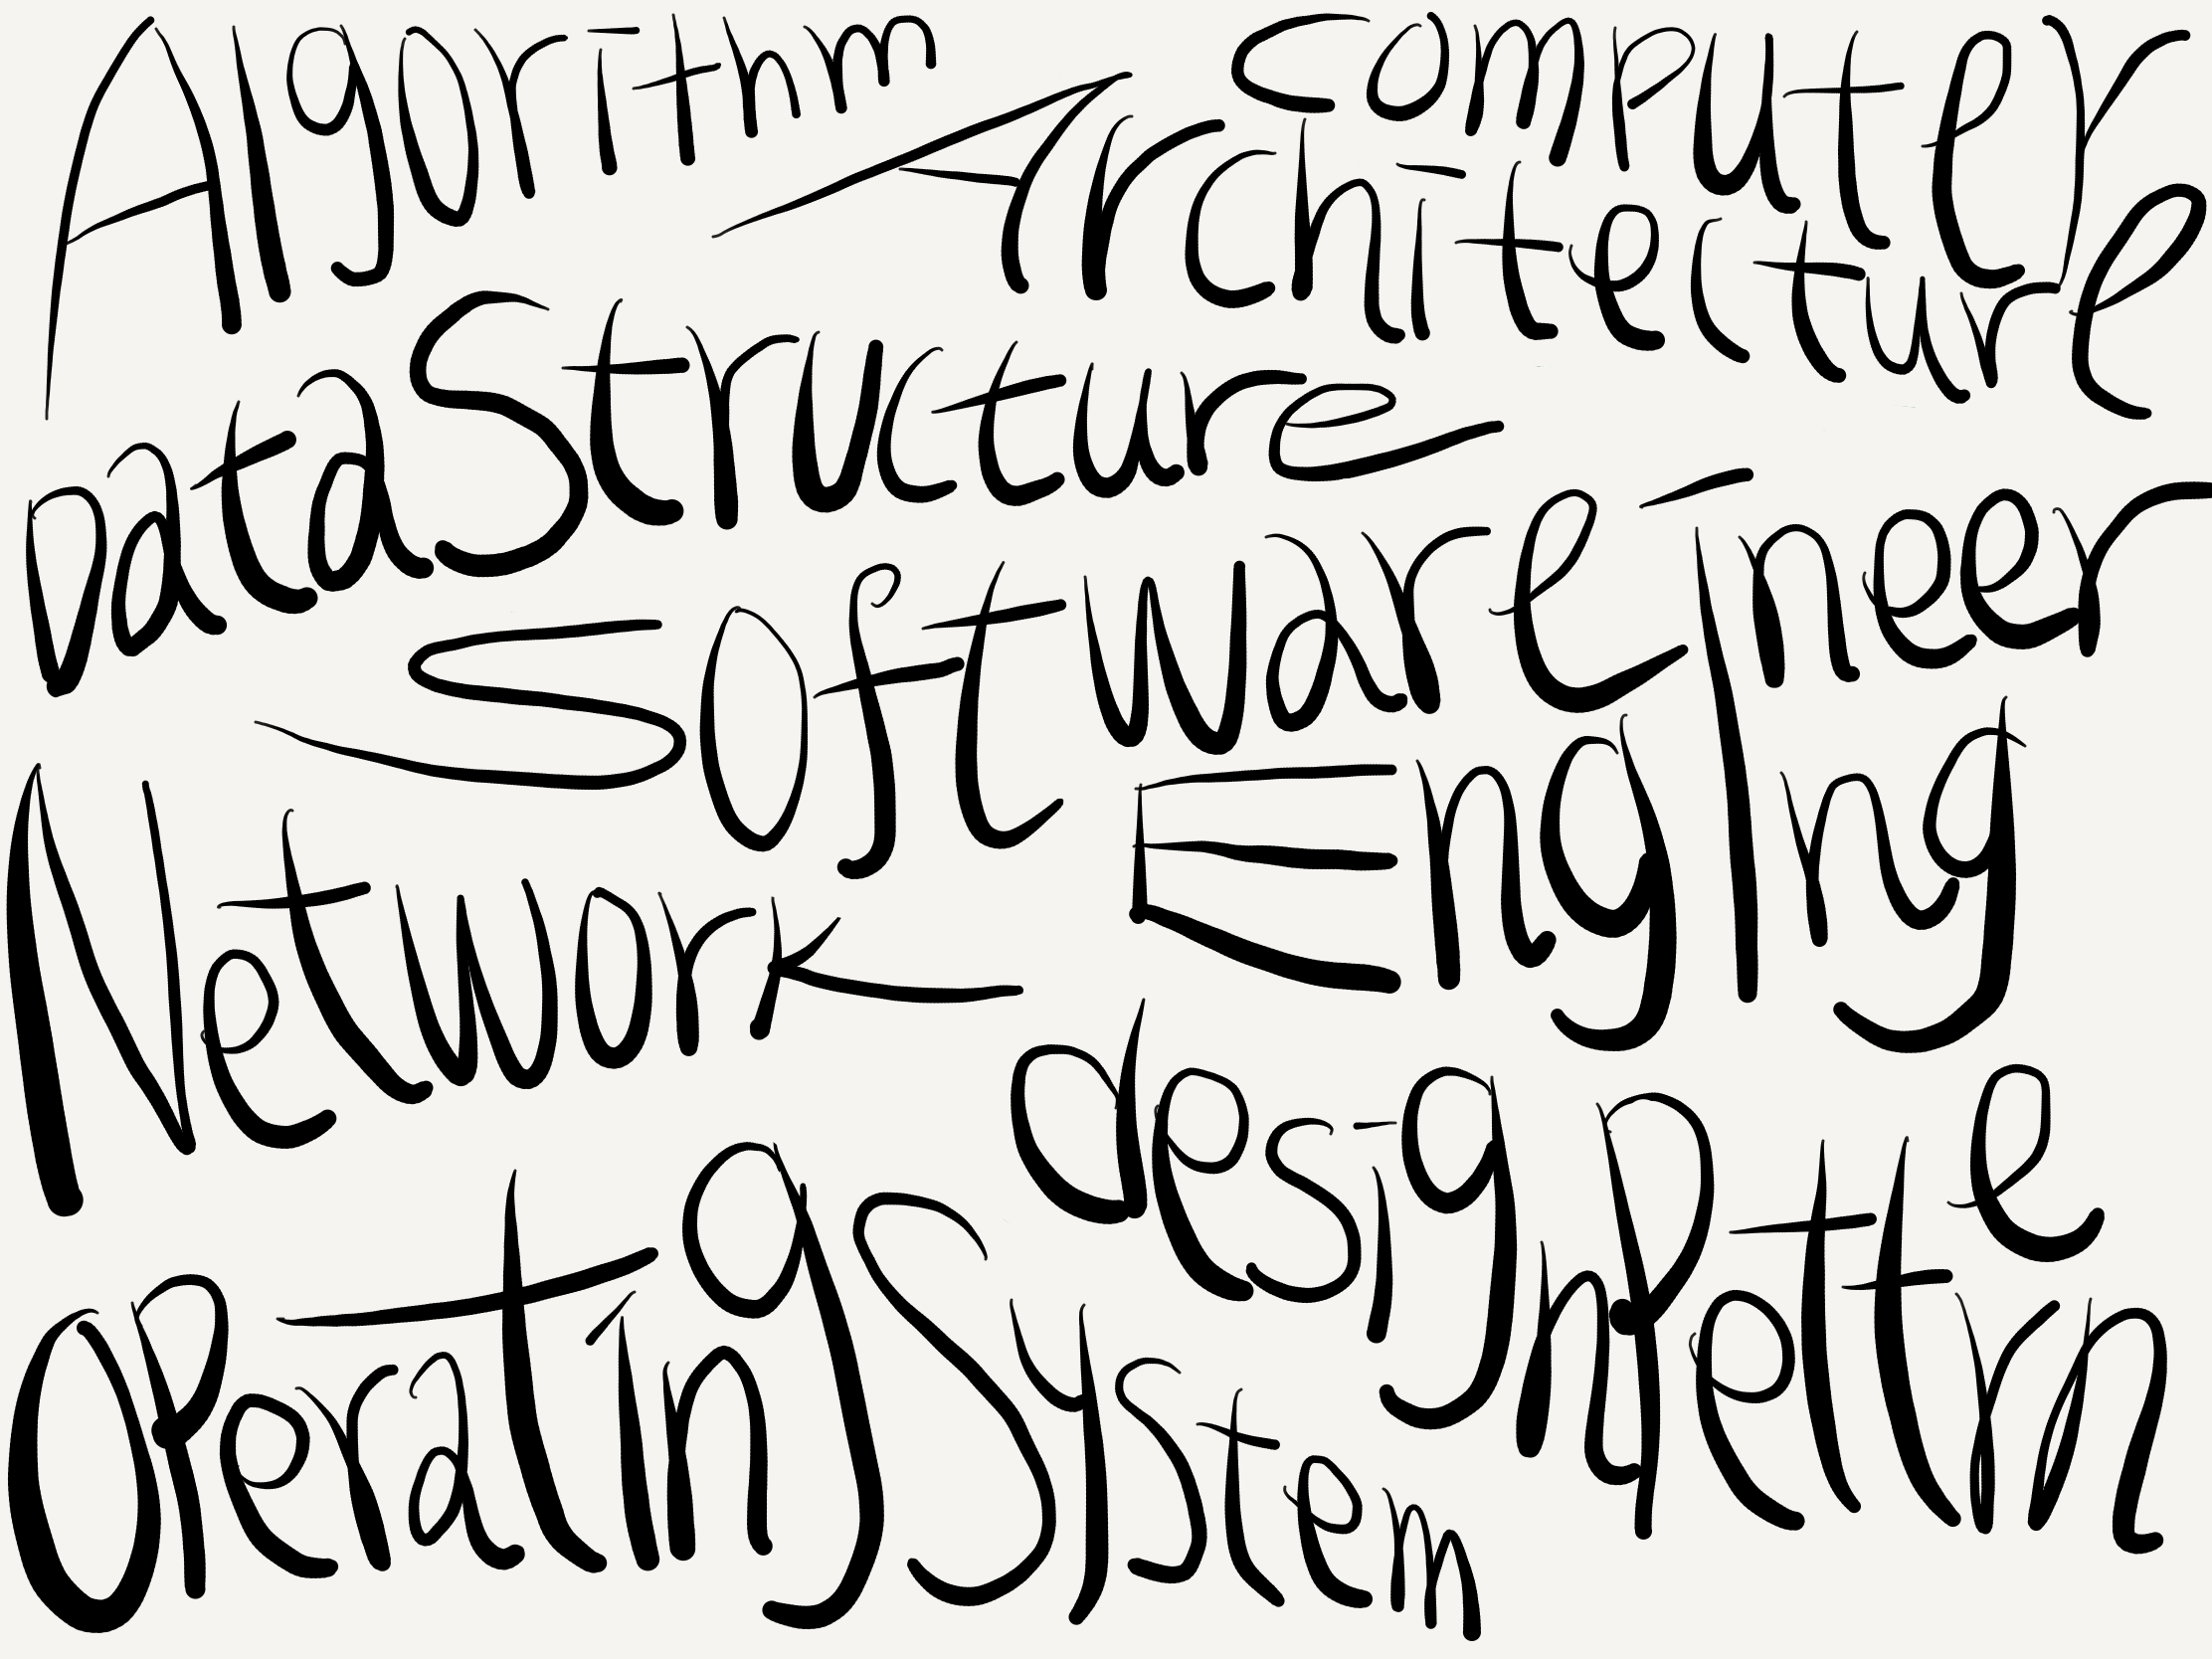 Algorithm
Computer
Architecture
Data Structure
Software
Engineering
Network
design Pettern
operating System